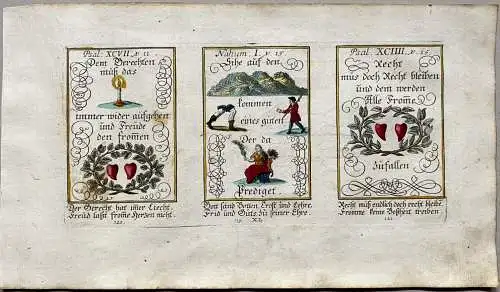 Psal. XCVII. v. 11.
Dem Gerechten
muß das
immer wider aufgehen
und Freude
den frommen
Der Gerecht hat imer Liecht.
Freud lasst from̄e Hertzen nicht.
120.
Nahum. I. v. 15.
Sihe auf den
kommen
eines guten
Der da
Prediget
Gott sand Botten, Trost und Lehre,
Frid und Guts zu seiner Ehre.
XL.
Psal. XCIIII. v. 15.
Recht
mus doch Recht bleiben
und dem werden
Alle From̄e
zufallen
Recht muß endlich doch recht bleibē
Fromme keine Boßheit treiben